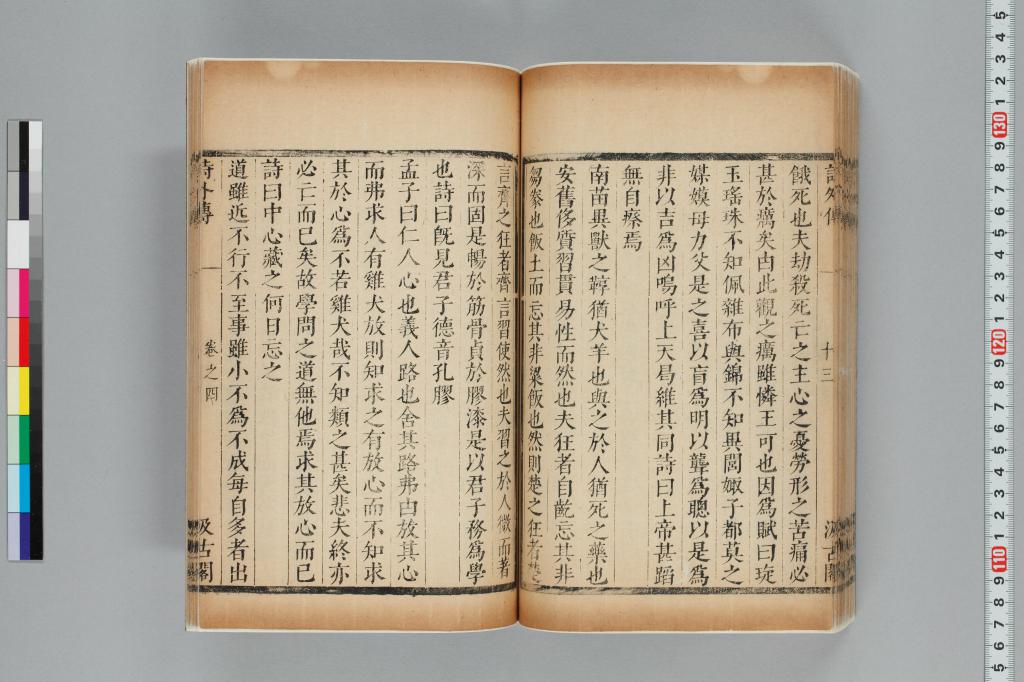 餓死也夫劫殺死亡之主心之憂勞形之苦痛必
甚於癘矣由此觀之癘雖憐王可也因爲賦曰琁
玉瑤珠不知佩雜布與錦不知異閭娵子都莫之
媒嫫母力父是之喜以盲爲明以聾爲聰以是爲
非以吉爲凶嗚呼上天曷維其同詩曰上帝甚蹈
無自瘵焉
南苗異獸之鞟猶犬羊也與之於人猶死之藥也
安舊侈質習貫易性而然也夫狂者自齕忘其非
芻豢也飯土而忘其非粱飯也然則楚之狂者楚
言齊之狂者齊言習使然也夫習之於人微而著
深而固是暢於筋骨貞於膠漆是以君子務爲學
也詩曰旣見君子德音孔膠
孟子曰仁人心也義人路也舍其路弗由放其心
而弗求人有雞犬放則知求之有放心而不知求
其於心爲不若雞犬哉不知類之甚矣悲夫終亦
必亡而已矣故學問之道無他焉求其放心而已
詩曰中心藏之何日忘之
道雖近不行不至事雖小不爲不成每自多者出
詩外傳
卷之四
汲古閣
詩外傳
十三
汲古閣
5
4
3
2
1
130
9
8
7
6
5
4
3
2
1
120
9
8
7
6
5
4
3
2
1
110
9
8
7
6
5